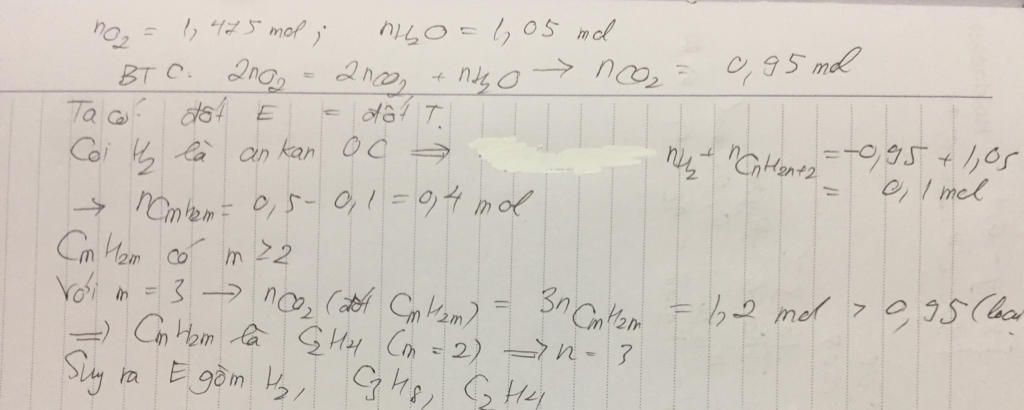 nO₂ = 1,475 mol; nH₂O = 1,05 mol
BT C. 2nO₂ = 2nCO₂ + nH₂O → nCO₂ = 0,95 mol
Ta có: đốt E = đốt T.
Coi H₂ là ankan 0C ⇒ nH₂ + nCnH2n+2 = -0,95 + 1,05
= 0,1 mol
→ nCmH2m = 0,5 - 0,1 = 0,4 mol
CmH2m có m ≥ 2
Với m = 3 → nCO₂ (đốt CmH2m) = 3nCmH2m = 1,2 mol > 0,95 (loại
⇒ CmH2m là C₂H₄ (m = 2) ⇒ n = 3
Suy ra E gồm H₂, C₃H₈, C₂H₄